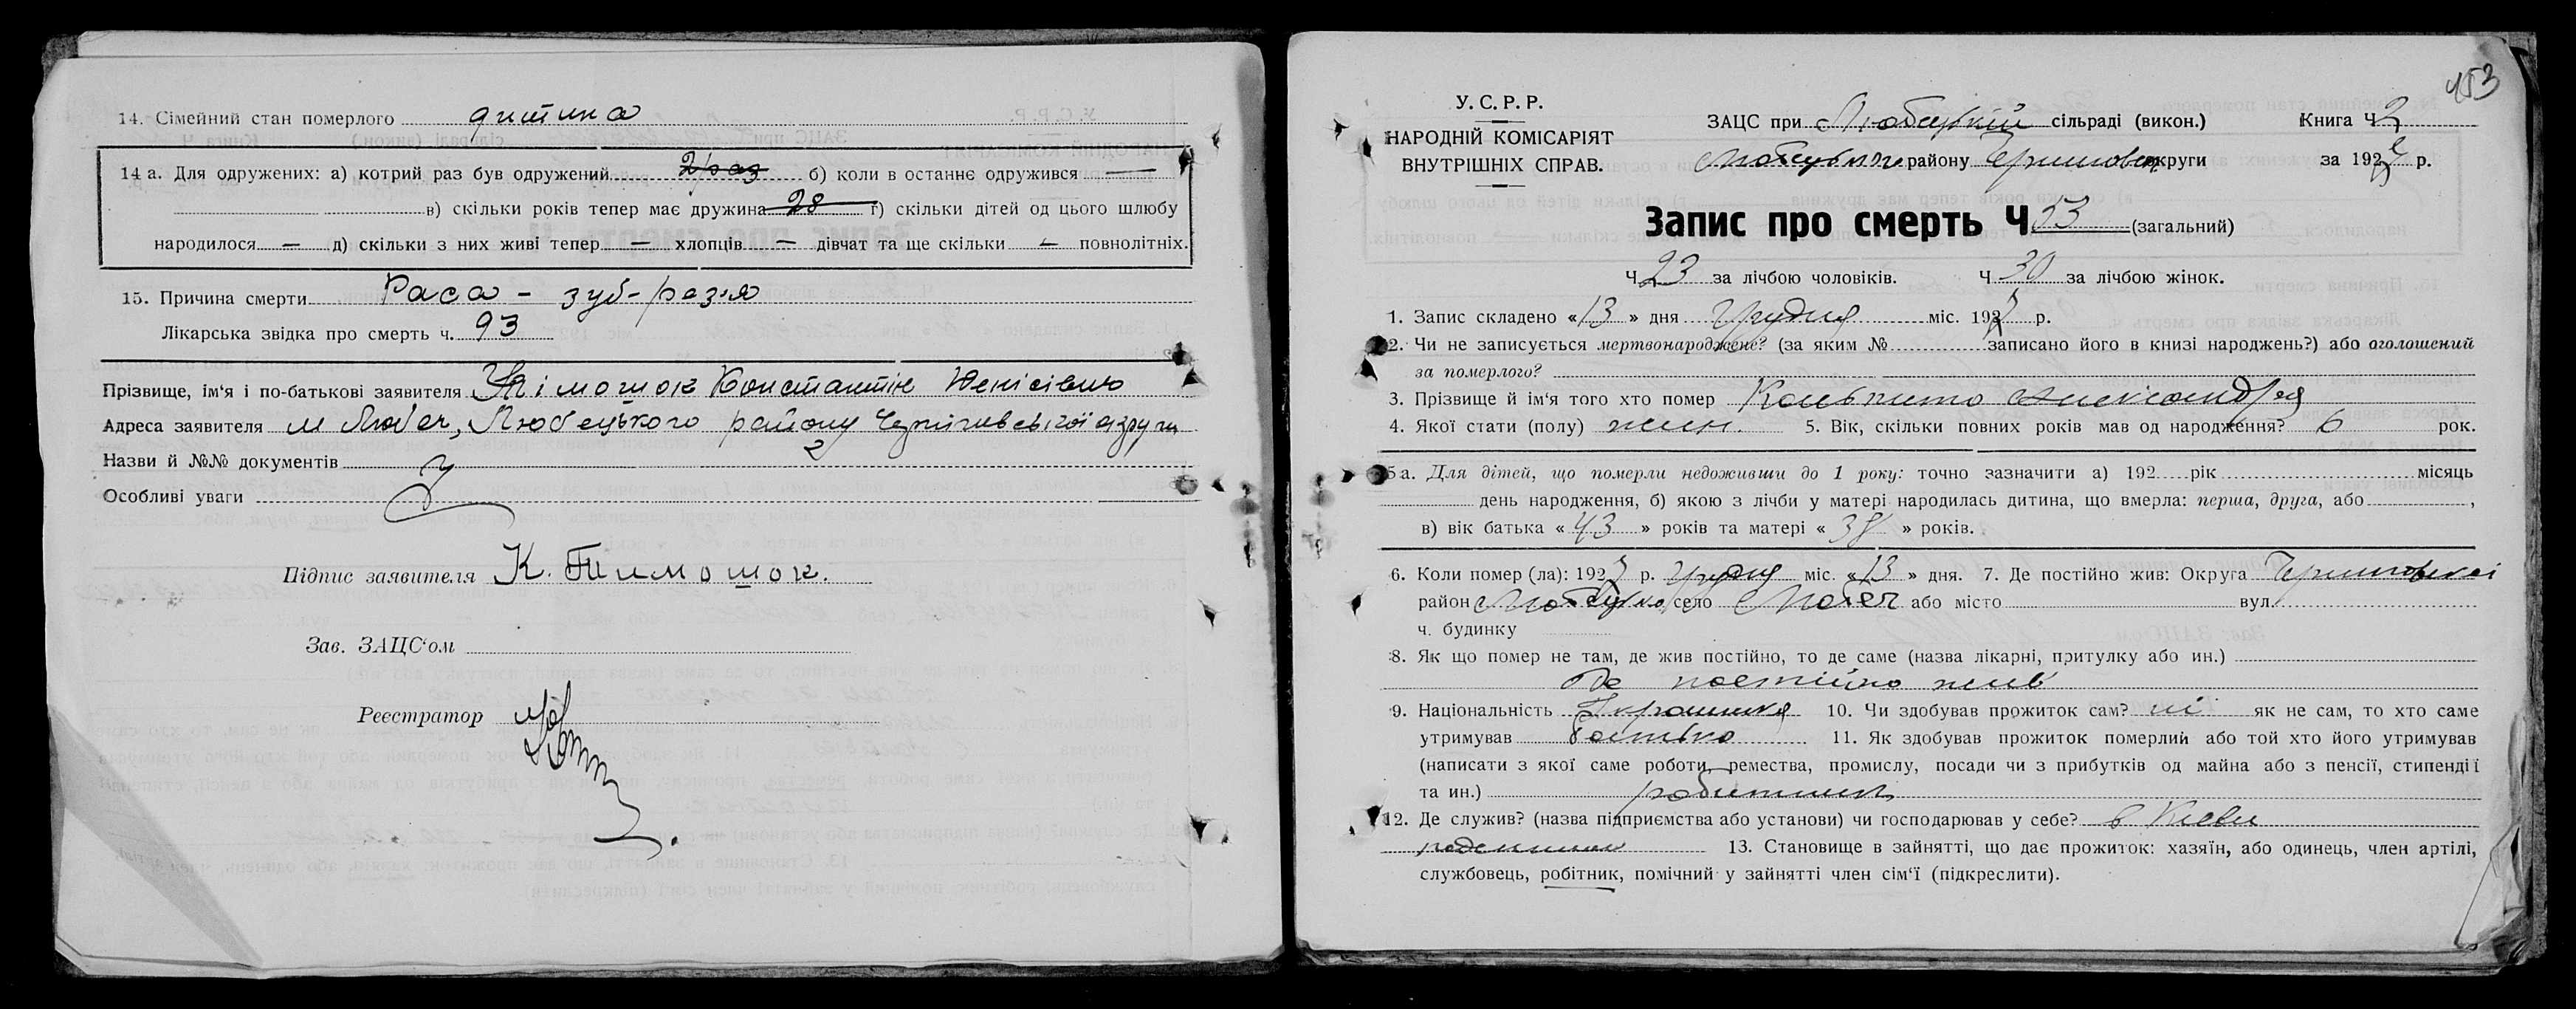 14. Сімейний стан померлого дитина
14 а. Для одружених: а) котрий раз був одружений 2 раз б) коли в останнє одружився —
в) скільки років тепер має дружина 28 г) скільки дітей од цього шлюбу
народилося — д) скільки з них живі тепер — хлопців — дівчат та ще скільки — повнолітніх.
15. Причина смерти
Лікарська звідка про смерть ч. 93
Прізвище, ім'я і по-батькові заявителя Тімошок Константін
Адреса заявителя м Любеч, Любецького району Чернігивської округи
Назви й №№ документів
Особливі уваги
Підпис заявителя К. Тимошок.
Зав. ЗАЦС'ом
Реєстратор
453
У. С. Р. Р.
НАРОДНІЙ КОМІСАРІЯТ
ВНУТРІШНІХ СПРАВ.
ЗАЦС при Любецькій сільраді (викон.) Книга Ч 2
району округи за 192 р.
Запис про смерть Ч 53 (загальний)
Ч 23 за лічбою чоловіків. Ч 30 за лічбою жінок.
1. Запис складено «13» дня Грудня міс. 192 р.
2. Чи не записується мертвонароджене? (за яким № записано його в книзі народжень?) або оголошений
за померлого?
3. Прізвище й ім'я того хто помер
4. Якої стати (полу) жин. 5. Вік, скільки повних років мав од народження? 6 рок.
5а. Для дітей, що померли недоживши до 1 року: точно зазначити а) 192 рік місяць
день народження, б) якою з лічби у матері народилась дитина, що вмерла: перша, друга, або ,
в) вік батька «43» років та матері « » років.
6. Коли помер (ла): 192 р. Грудня міс. «13» дня. 7. Де постійно жив: Округа
район село Любеч або місто вул.
ч. будинку
8. Як що помер не там, де жив постійно, то де саме (назва лікарні, притулку або ин.)
Де постійно жив
9. Національність Українка 10. Чи здобував прожиток сам? ні як не сам, то хто саме
утримував батько 11. Як здобував прожиток померлий або той хто його утримував
(написати з якої саме роботи, ремества, промислу, посади чи з прибутків од майна або з пенсії, стипендії
та ин.) робитник
12. Де служив? (назва підприємства або установи) чи господарював у себе? в Києви
13. Становище в зайнятті, що дає прожиток: хазяїн, або одинець, член артілі,
службовець, робітник, помічний у зайнятті член сім'ї (підкреслити).